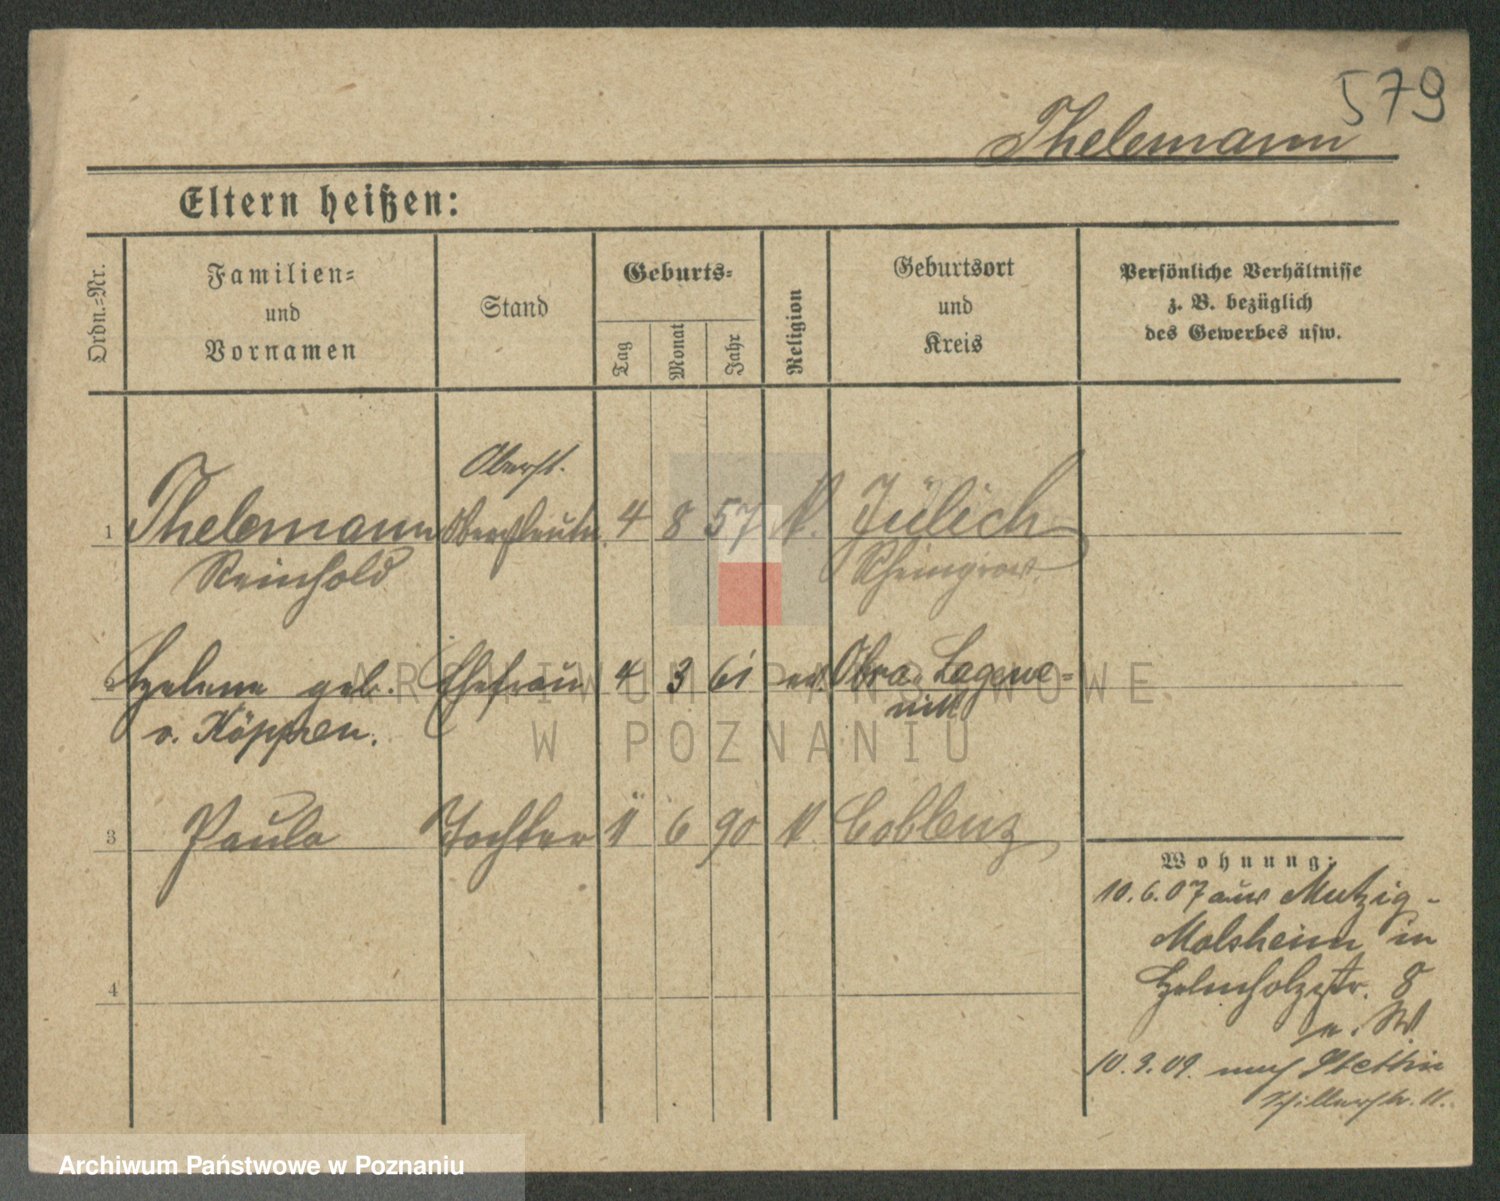 579
Thelemann
Eltern heißen:
Ordn.-Nr.
Familien-
und
Vornamen
Stand
Geburts-
Tag
Monat
Jahr
Religion
Geburtsort
und
Kreis
Persönliche Verhältnisse
z. B. bezüglich
des Gewerbes usw.
Oberst.
1 Thelemann Oberstleutn. 4 8 57 Jülich
Reinhold
Helene geb. Ehefrau 4 3 61 ev. Obra
v. Köppen.
3 Paula Tochter 11 6 90 Coblenz
4
Wohnung:
10.6.07 aus Mutzig-
Molsheim in
Helmholzstr. 8
10.3.09. nach Stettin
Schillerstr. 11.
ARCHIWUM PAŃSTWOWE
W POZNANIU
Archiwum Państwowe w Poznaniu